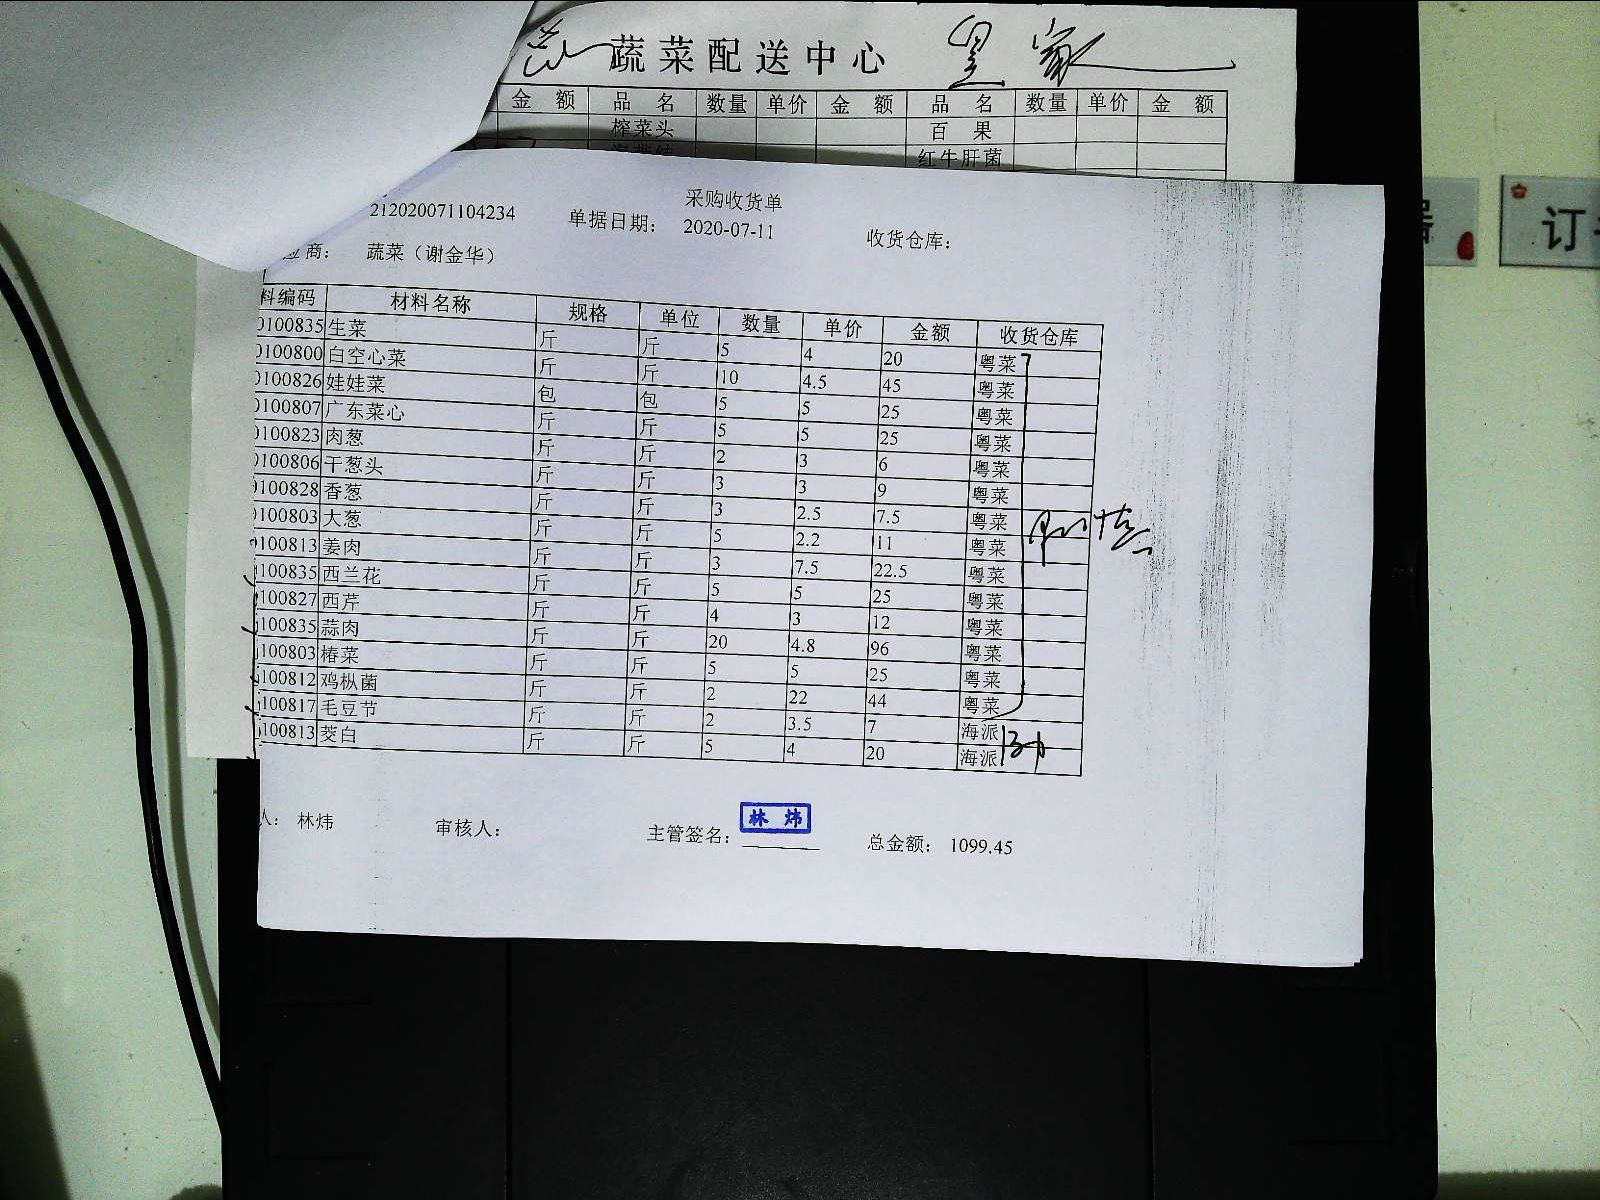 蔬菜配送中心
金 额 品 名 数量 单价 金 额 品 名 数量 单价 金 额
榨菜头 百 果
红牛肝菌
采购收货单
212020071104234 单据日期： 2020-07-11 收货仓库：
应商： 蔬菜（谢金华）
料编码 材料名称 规格 单位 数量 单价 金额 收货仓库
0100835 生菜 斤 斤 5 4 20 粤菜
0100800 白空心菜 斤 斤 10 4.5 45 粤菜
0100826 娃娃菜 包 包 5 5 25 粤菜
0100807 广东菜心 斤 斤 5 5 25 粤菜
0100823 肉葱 斤 斤 2 3 6 粤菜
0100806 干葱头 斤 斤 3 3 9 粤菜
0100828 香葱 斤 斤 3 2.5 7.5 粤菜
0100803 大葱 斤 斤 5 2.2 11 粤菜
0100813 姜肉 斤 斤 3 7.5 22.5 粤菜
100835 西兰花 斤 斤 5 5 25 粤菜
100827 西芹 斤 斤 4 3 12 粤菜
100835 蒜肉 斤 斤 20 4.8 96 粤菜
100803 椿菜 斤 斤 5 5 25 粤菜
100812 鸡枞菌 斤 斤 2 22 44 粤菜
100817 毛豆节 斤 斤 2 3.5 7 海派
100813 茭白 斤 斤 5 4 20 海派
人： 林炜 审核人： 主管签名： 林 炜 总金额： 1099.45
订